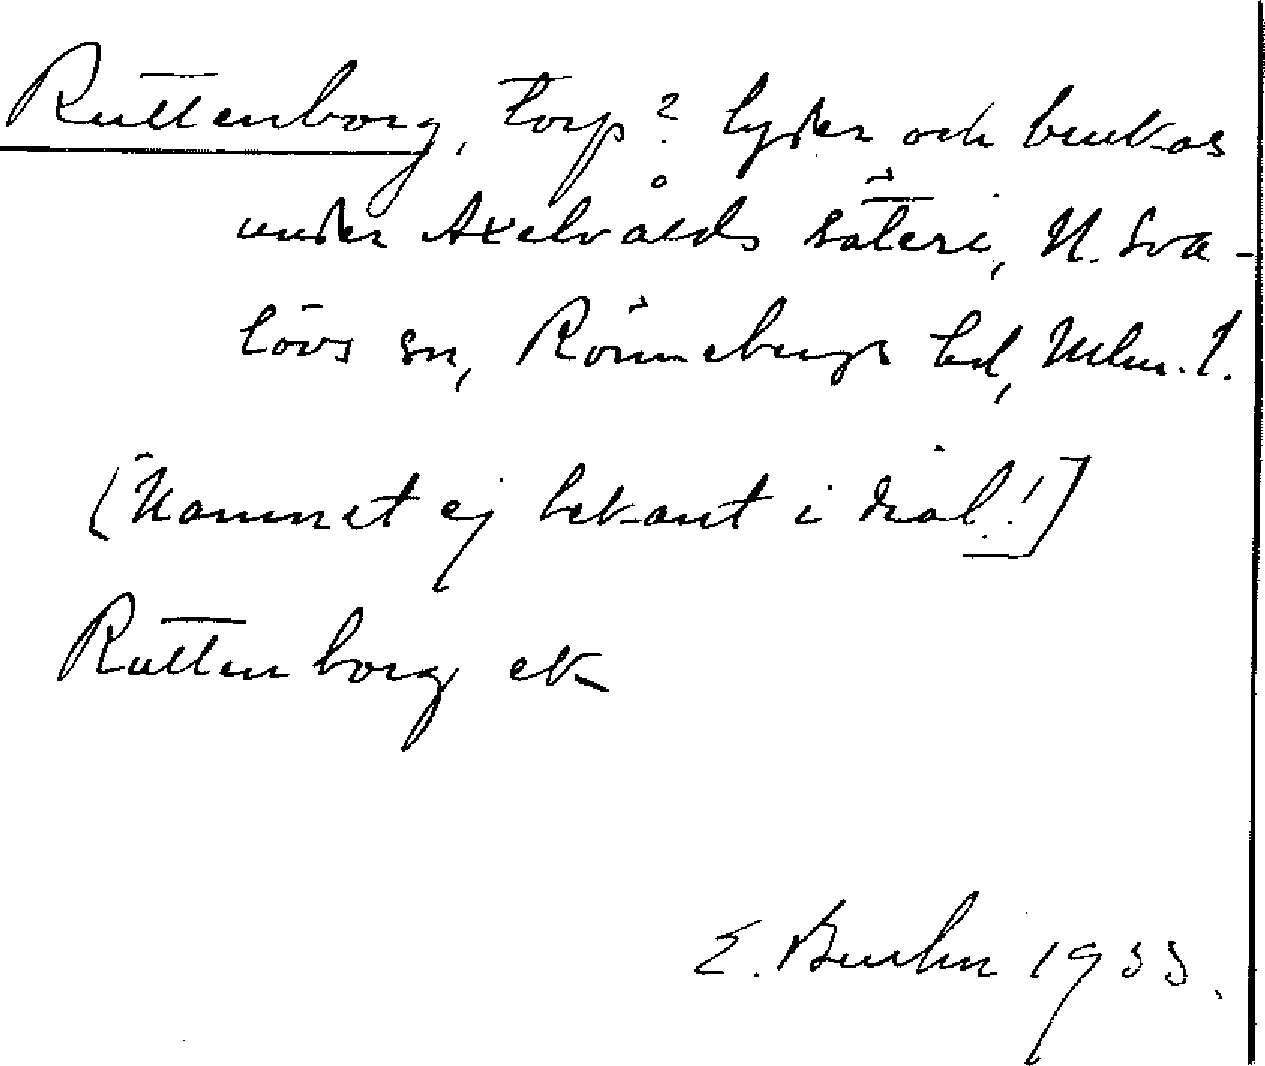 Ruttenborg, torp? lyder och brukas
under Axelvålds säteri, N. Sva-
lövs sn, Rönnebergs hd, Mlm. l.
[Namnet ej bekant i dial.!]
Ruttenborg ek
E. Bruhn 1933.